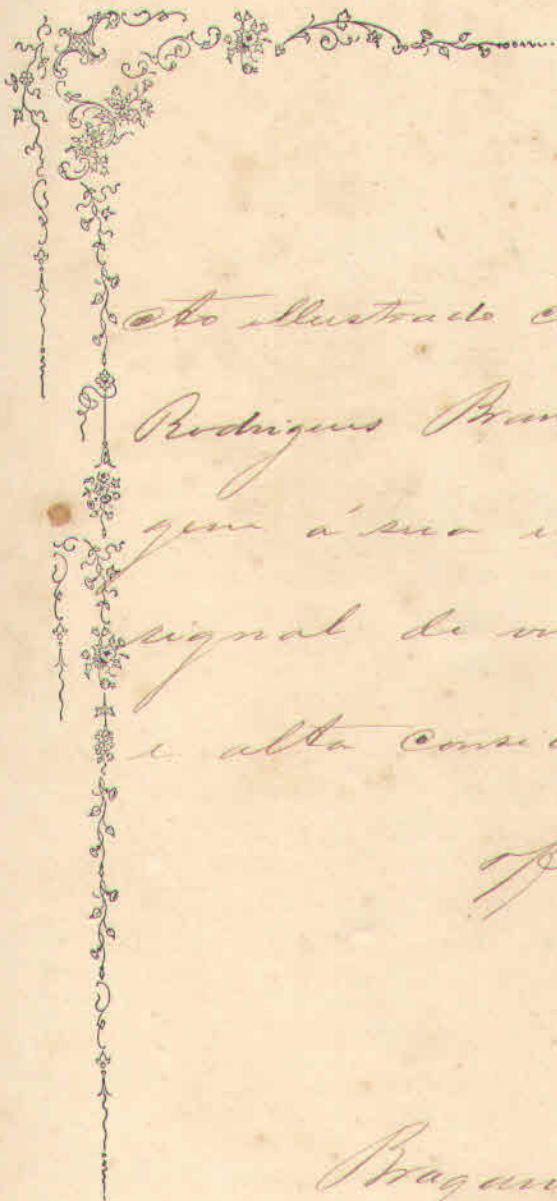 Ao illustrado C
Rodrigues Bran
gem á sua i
signal de vi
e alta consid
of
Bragan